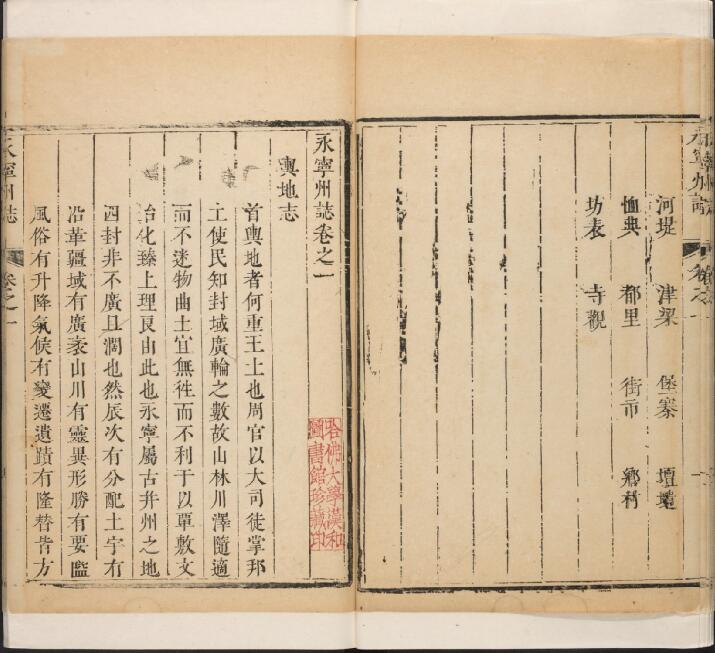 永寧州誌
卷之一
河堤 津梁 堡寨 壇壝
恤典 都里 街市 鄉村
坊表 寺觀
永寧州誌卷之一
輿地志
首輿地者何重王土也周官以大司徒掌邦
土使民知封域廣輪之數故山林川澤隨適
而不迷物曲土宜無徃而不利于以覃敷文
治化臻上理良由此也永寧屬古幷州之地
四封非不廣且濶也然辰次有分配土宇有
沿革疆域有廣袤山川有靈異形勝有要隘
風俗有升降氣候有變遷遺蹟有隆替昔方
永寧州誌
卷之一
哈佛大學漢和
圖書館珍藏印